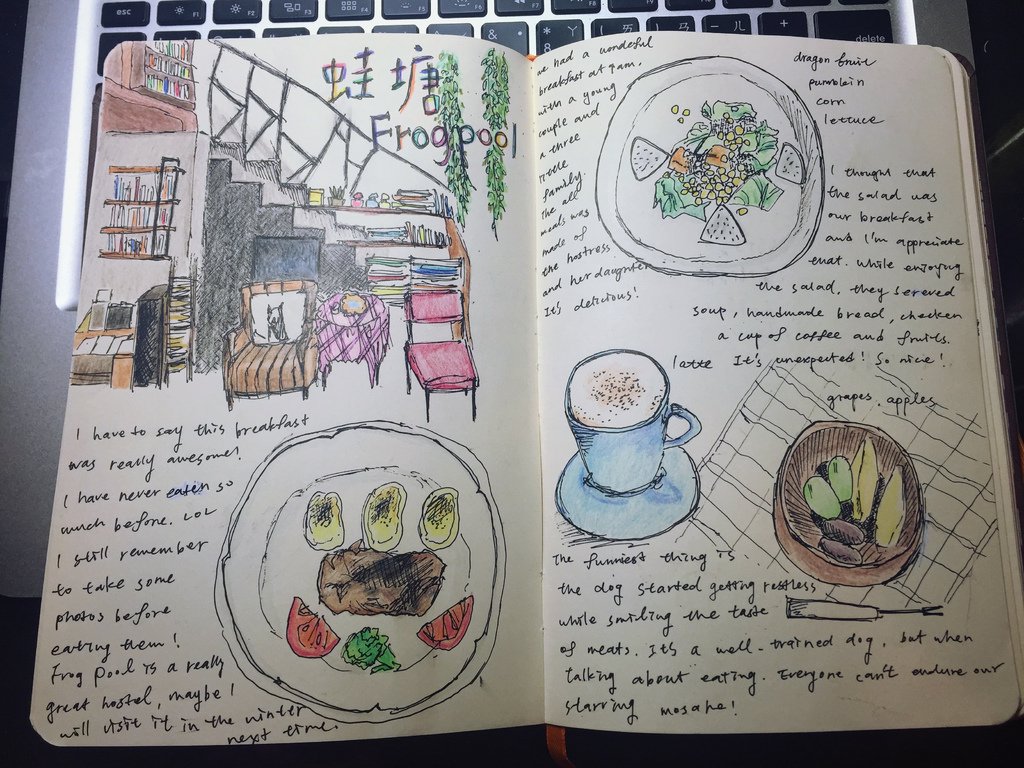 esc
delete
蛙塘
Frog pool
I have to say this breakfast
was really awesome!
I have never eaten so
much before. LOL
I still remember
to take some
photos before
eating them!
Frog Pool is a really
great hostel, maybe I
will visit it in the winter
next time.
we had a wonderful
breakfast at 9am.
with a young
couple and
a three
people
family.
the all
meals was
made of
the hostress
and her daughter
It's delicious!
dragon fruit
pumpkin
corn
lettuce
I thought that
the salad was
our breakfast
and I'm appreciate
that. while enjoying
the salad, they sereved
soup, handmade bread, checken
a cup of coffee and fruits.
latte It's unexpected! So nice!
grapes, apples
The funniest thing is
the dog started getting restless
while smiling the taste
of meats. It's a well-trained dog, but when
talking about eating. Everyone can't endure our
starring